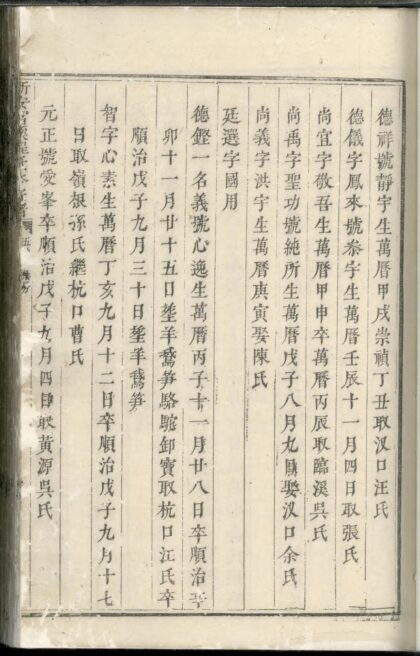 德祥號靜宇生萬曆甲戌崇禎丁丑取汊口汪氏
德儀字鳳來號泰宇生萬曆壬辰十一月四日取張氏
尚宜字敬吾生萬曆甲申卒萬曆丙辰取臨溪吳氏
尚禹字聖功號純所生萬曆戊子八月九日娶汊口余氏
尚義字洪宇生萬曆庚寅娶陳氏
廷選字國用
德鏗一名義號心逸生萬曆丙子十一月廿八日卒順治辛
卯十一月廿十五日塟羊鵞笋駱駝卸寶取杭口江氏卒
順治戊子九月三十日塟羊鵞笋
智字心素生萬曆丁亥九月十二日卒順治戊子九月十七
日取嶺根孫氏繼杭口曹氏
元正號愛峯卒順治戊子九月四日取黃源吳氏